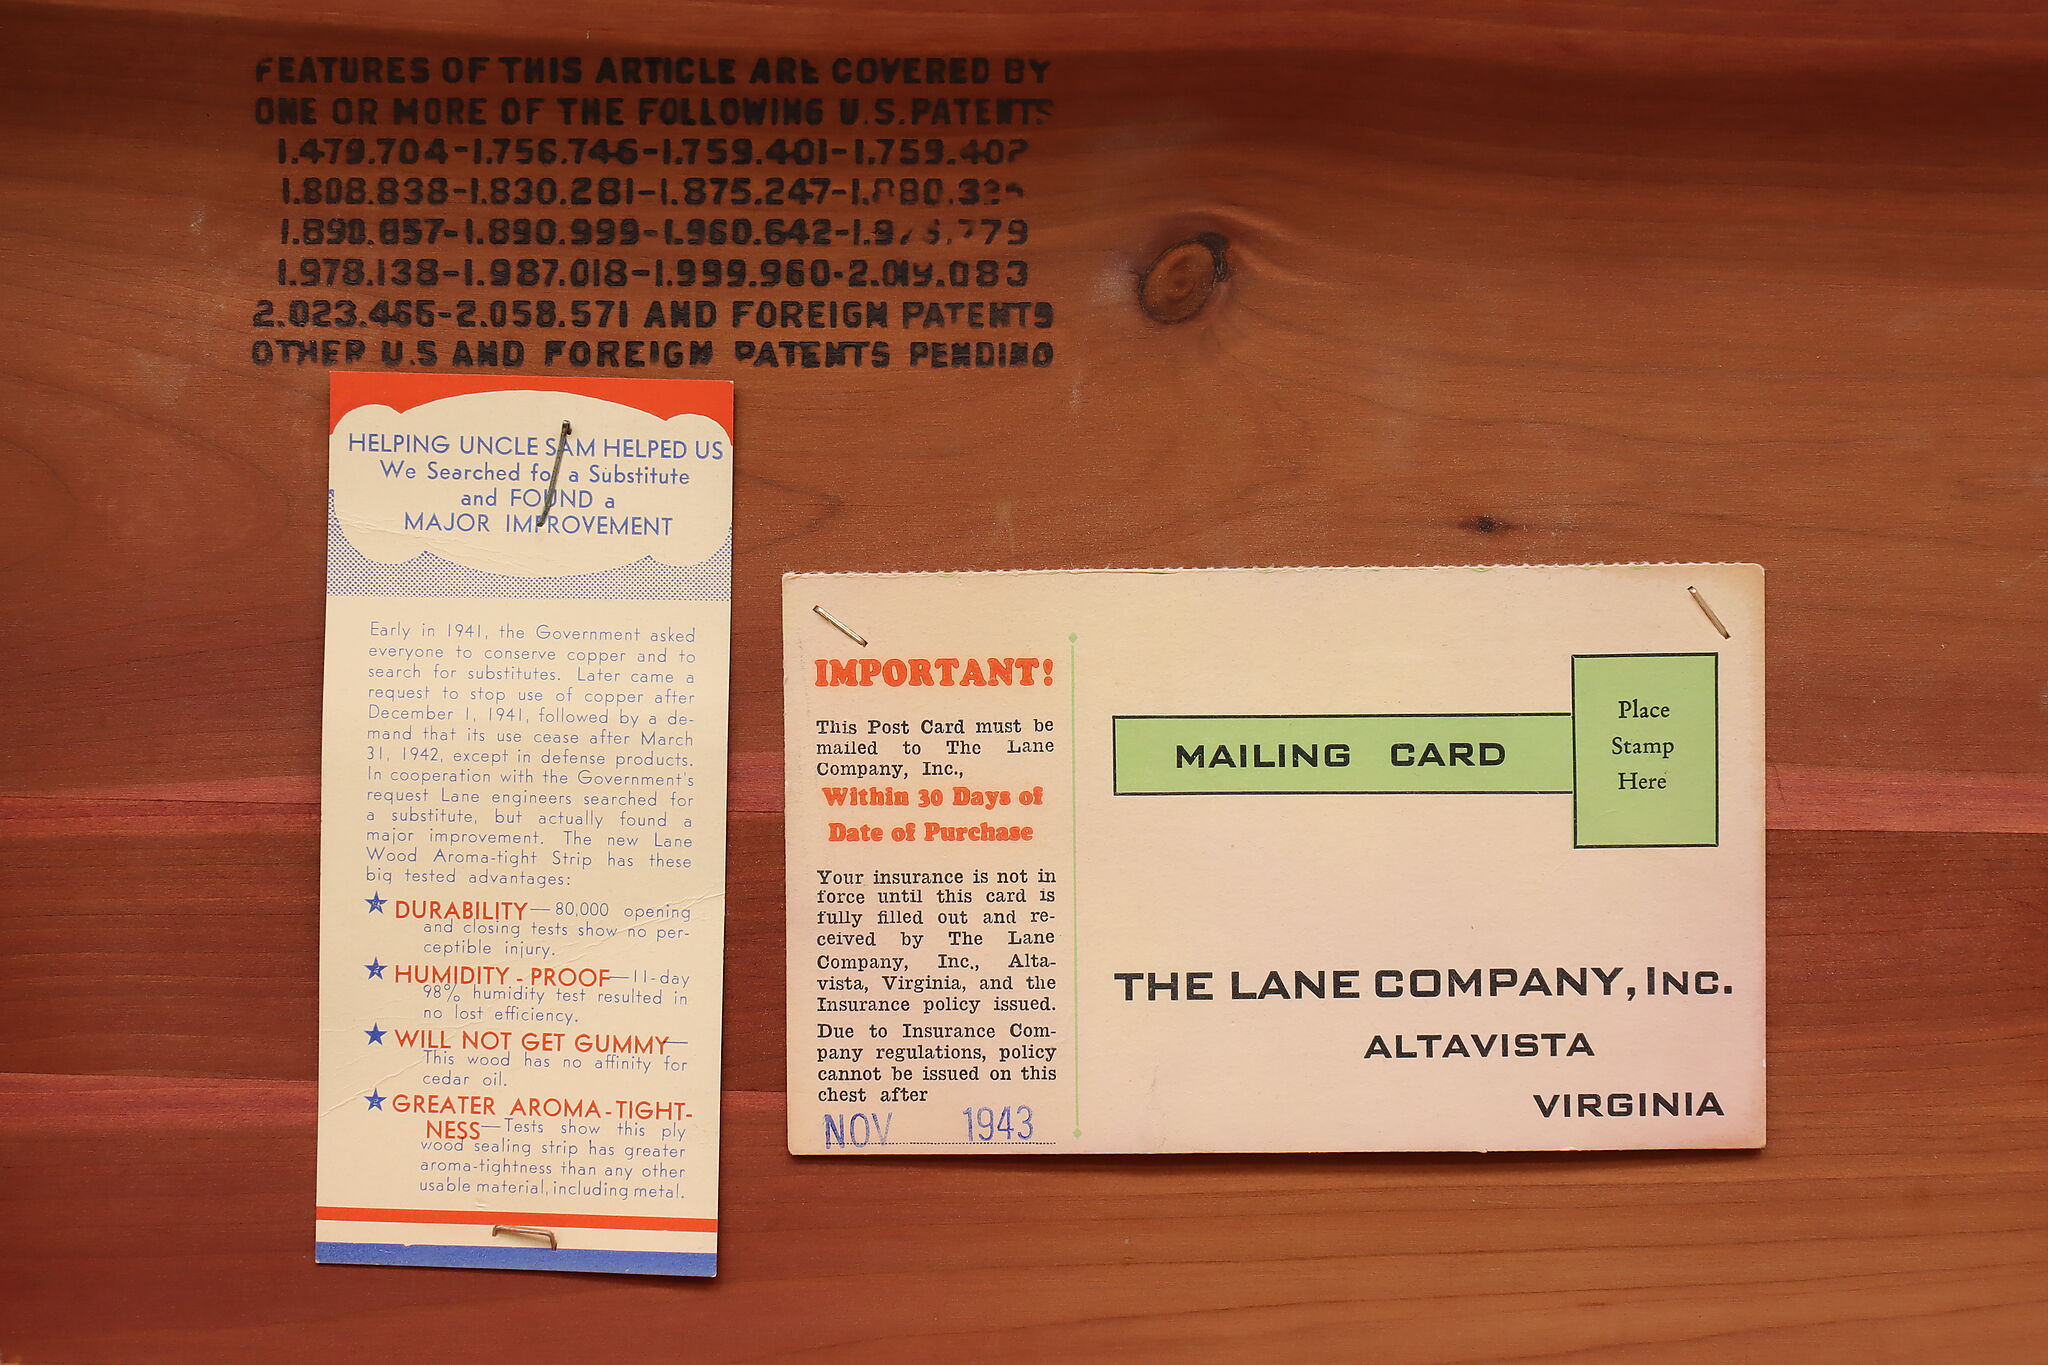 FEATURES OF THIS ARTICLE ARE COVERED BY
ONE OR MORE OF THE FOLLOWING U.S. PATENTS
1.479.704-1.756.746-1.759.401-1.759.402
1.808.838-1.830.281-1.875.247-
1.890.857-1.890.999-1.960.642-
1.978.138-1.987.018-1.999.960-2.019.083
2.023.466-2.058.571 AND FOREIGN PATENTS
OTHER U.S AND FOREIGN PATENTS PENDING
HELPING UNCLE SAM HELPED US
We Searched for a Substitute
and FOUND a
MAJOR IMPROVEMENT
Early in 1941, the Government asked
everyone to conserve copper and to
search for substitutes. Later came a
request to stop use of copper after
December 1, 1941, followed by a de-
mand that its use cease after March
31, 1942, except in defense products.
In cooperation with the Government's
request Lane engineers searched for
a substitute, but actually found a
major improvement. The new Lane
Wood Aroma-tight Strip has these
big tested advantages:
DURABILITY—80,000 opening
and closing tests show no per-
ceptible injury.
HUMIDITY-PROOF—11-day
98% humidity test resulted in
no lost efficiency.
WILL NOT GET GUMMY—
This wood has no affinity for
cedar oil.
GREATER AROMA-TIGHT-
NESS—Tests show this ply
wood sealing strip has greater
aroma-tightness than any other
usable material, including metal.
IMPORTANT!
This Post Card must be
mailed to The Lane
Company, Inc.,
Within 30 Days of
Date of Purchase
Your insurance is not in
force until this card is
fully filled out and re-
ceived by The Lane
Company, Inc., Alta-
vista, Virginia, and the
Insurance policy issued.
Due to Insurance Com-
pany regulations, policy
cannot be issued on this
chest after
NOV 1943
MAILING CARD
Place
Stamp
Here
THE LANE COMPANY, INC.
ALTAVISTA
VIRGINIA